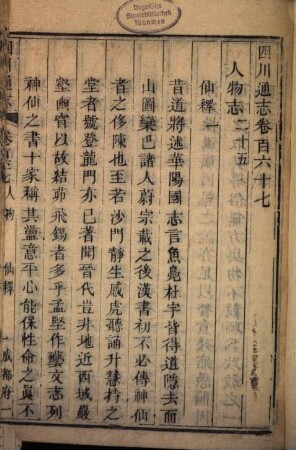 Bayerische
Staatsbibliothek
München
四川通志卷百六十七
人物志二十五
仙釋一
昔道將述華陽國志言魚鳧杜宇皆得道隱去而
山圖欒巴諸人蔚宗載之後漢書初不必傳神仙
者之侈陳也至若沙門靜生感虎聽誦升慧持之
堂者號登龍門亦已著聞晉代豈非地近西域巖
壑幽窅以故結茆飛錫者多乎孟堅作藝文志列
神仙之書十家稱其蕩意平心能保性命之眞不
卷百六十七
人物
仙釋
一
成都府